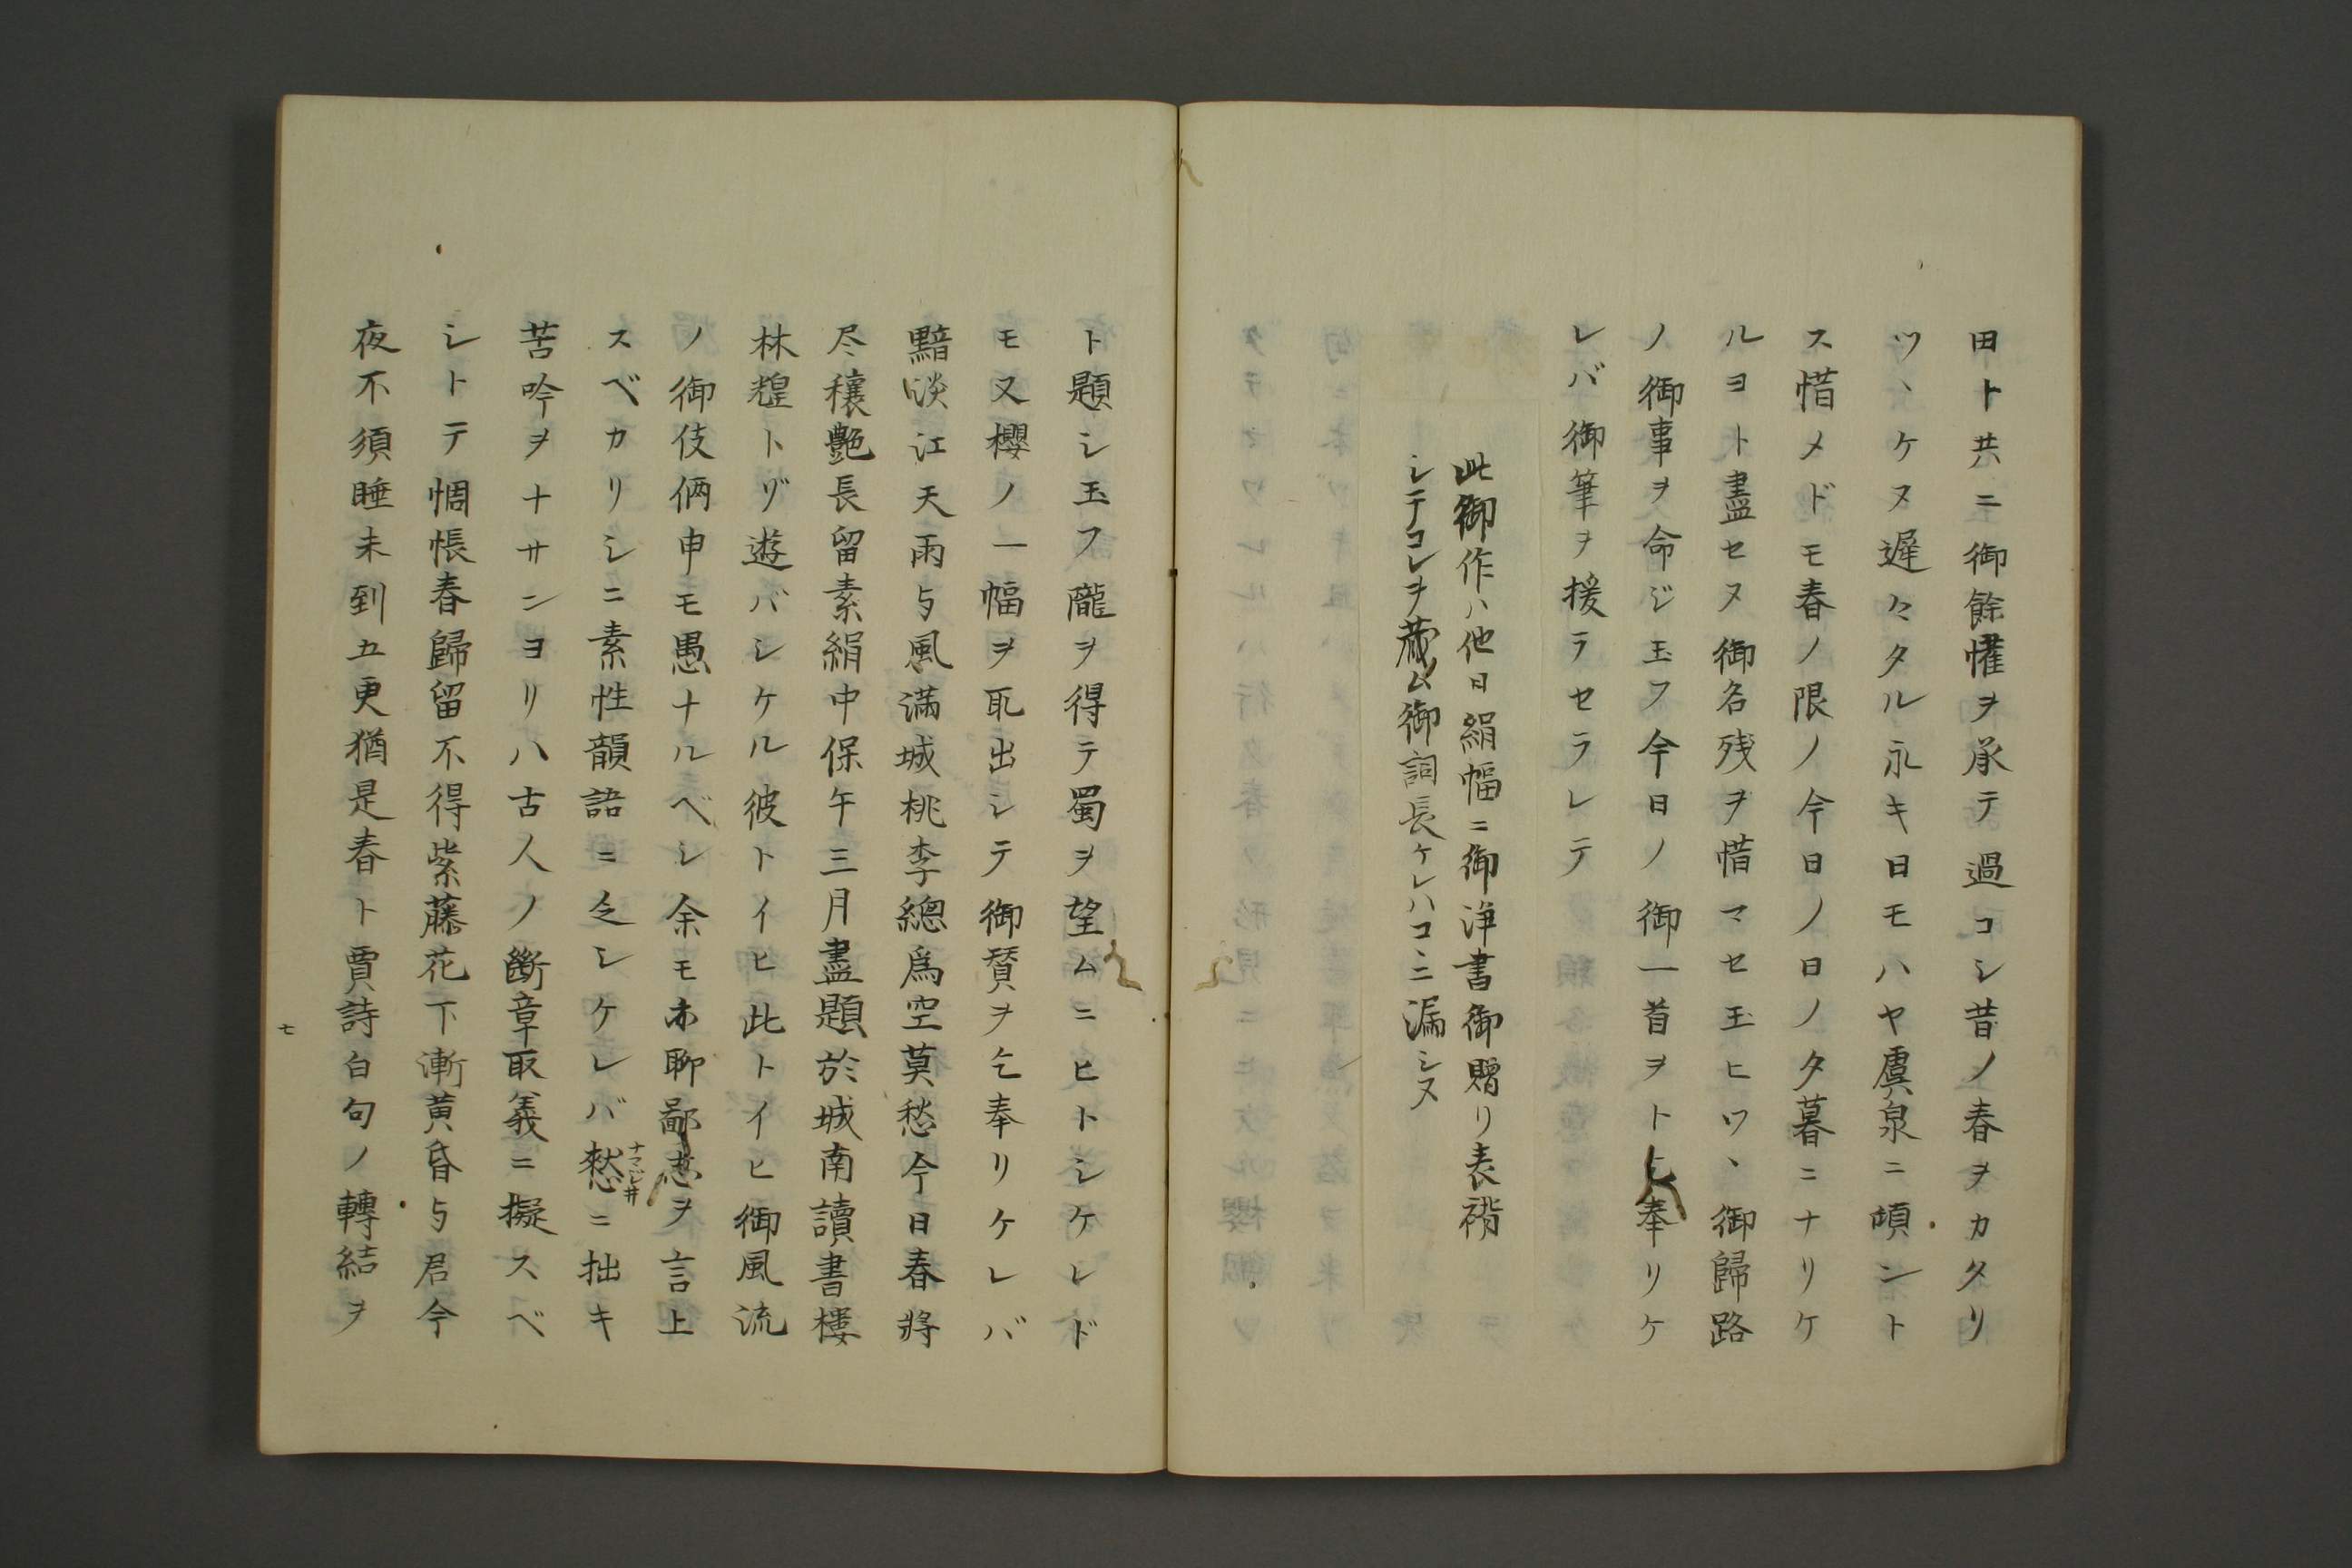 田ト共ニ御餘懽ヲ承テ過コシ昔ノ春ヲカタリ
ツヽケヌ遲々タル永キ日モハヤ虞泉ニ頃ント
ス惜メドモ春ノ限ノ今日ノ日ノ夕暮ニナリケ
ルヨト盡セヌ御名残ヲ惜マセ玉ヒツヽ御歸路
ノ御事ヲ命ジ玉フ今日ノ御一首ヲト上奉リケ
レバ御筆ヲ援ラセラレテ
此御作ハ他日絹幅ニ御淨書御贈リ表褙
シテコレヲ藏ム御詞長ケレハコヽニ漏シヌ
ト題シ玉フ隴ヲ得テ蜀ヲ望ムニヒトシケレド
モ又櫻ノ一幅ヲ取出シテ御賛ヲ乞奉リケレバ
黯淡江天雨与風満城桃李總爲空莫愁今日春將
尽穠艶長留素絹中保午三月盡題於城南讀書樓
林糧トヅ遊バシケル彼トイヒ此トイヒ御風流
ノ御伎倆申モ愚ナルベシ余モ亦聊鄙悲ヲ言上
スベカリシニ素性韻語ニ乏シケレバ憖ナマジ井ニ拙キ
苦吟ヲナサンヨリハ古人ノ斷章取義ニ擬スベ
シトテ惆悵春歸留不得紫藤花下漸黄昏与君今
夜不須睡未到五更猶是春ト賈詩白句ノ轉結ヲ
七